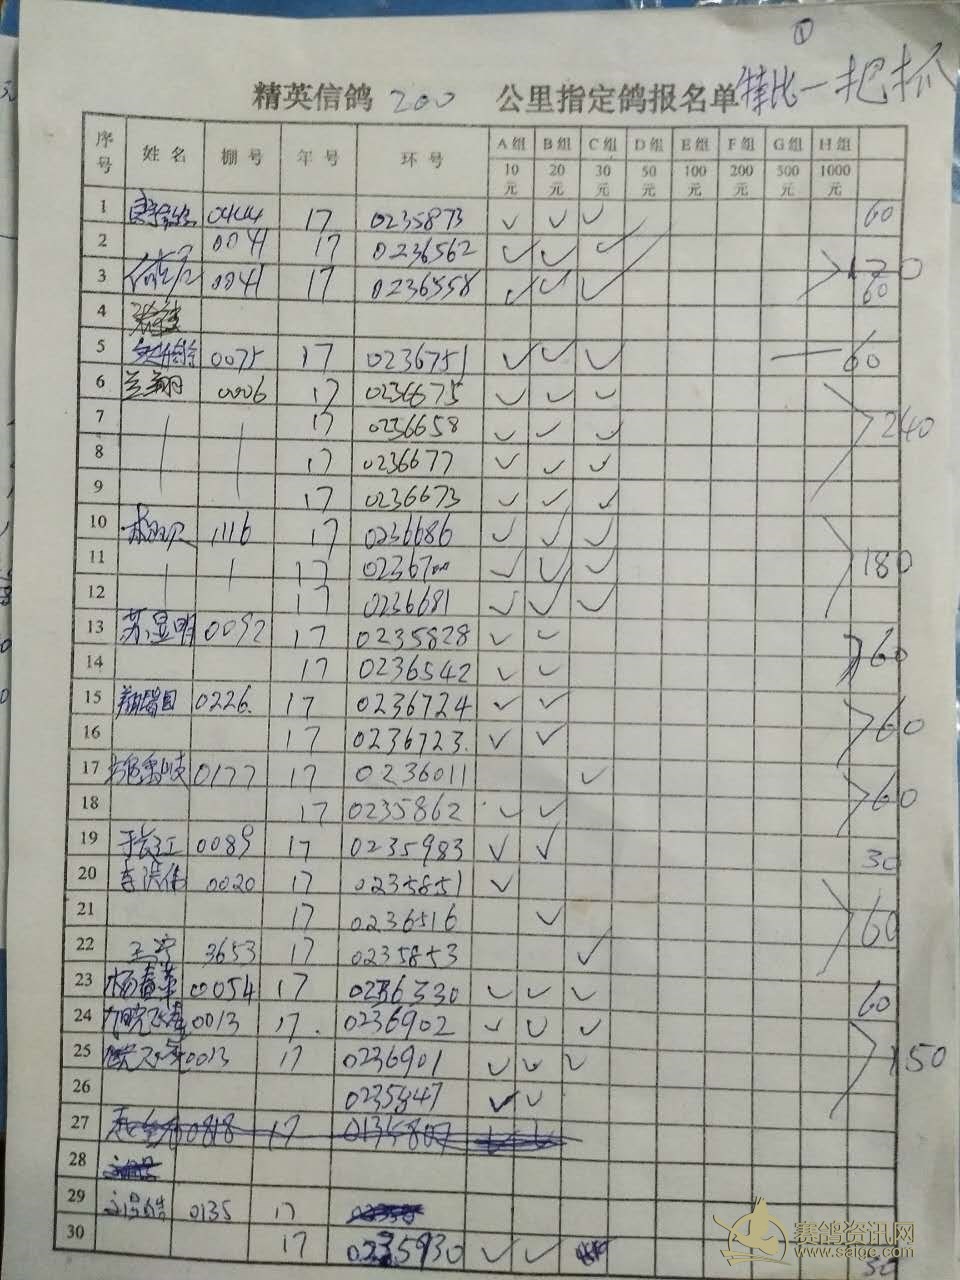 ①
精英信鸽 200 公里指定鸽报名单 特比一把抓
序号 姓名 棚号 年号 环号 A组 B组 C组 D组 E组 F组 G组 H组
10元 20元 30元 50元 100元 200元 500元 1000元
1 0444 17 0235873 ✓ ✓ ✓ 60
2 0041 17 0236562 ✓ ✓ ✓
3 0041 17 0236558 ✓ ✓ ✓ 60
4
5 0075 17 0236751 ✓ ✓ ✓ 60
6 兰翔 0006 17 0236675 ✓ ✓ ✓
7 17 0236658 ✓ ✓ ✓ 240
8 17 0236677 ✓ ✓ ✓
9 17 0236673 ✓ ✓ ✓
10 1116 17 0236686 ✓ ✓ ✓
11 17 ✓ ✓ ✓ 180
12 17 0236681 ✓ ✓ ✓
13 苏显明 0092 17 0235828 ✓ ✓ 60
14 17 0236542 ✓ ✓
15 0226. 17 0236724 ✓ ✓ 60
16 17 0236723. ✓ ✓
17 0177 17 0236011 ✓ 60
18 17 0235862 ✓ ✓
19 于长江 0089 17 0235983 ✓ ✓ 30
20 李洪伟 0020 17 0235851 ✓
21 17 0236516 ✓ 60
22 王宁 3653 17 0235853 ✓
23 杨春革 0054 17 0236330 ✓ ✓ ✓ 60
24 0013 17. 0236902 ✓ ✓ ✓
25 0013 17 0236901 ✓ ✓ ✓ 150
26 0235847 ✓ ✓
27 0818 17
28
29 0135 17
30 17 0235930 ✓ ✓ 30
赛鸽资讯网
www.saige.com